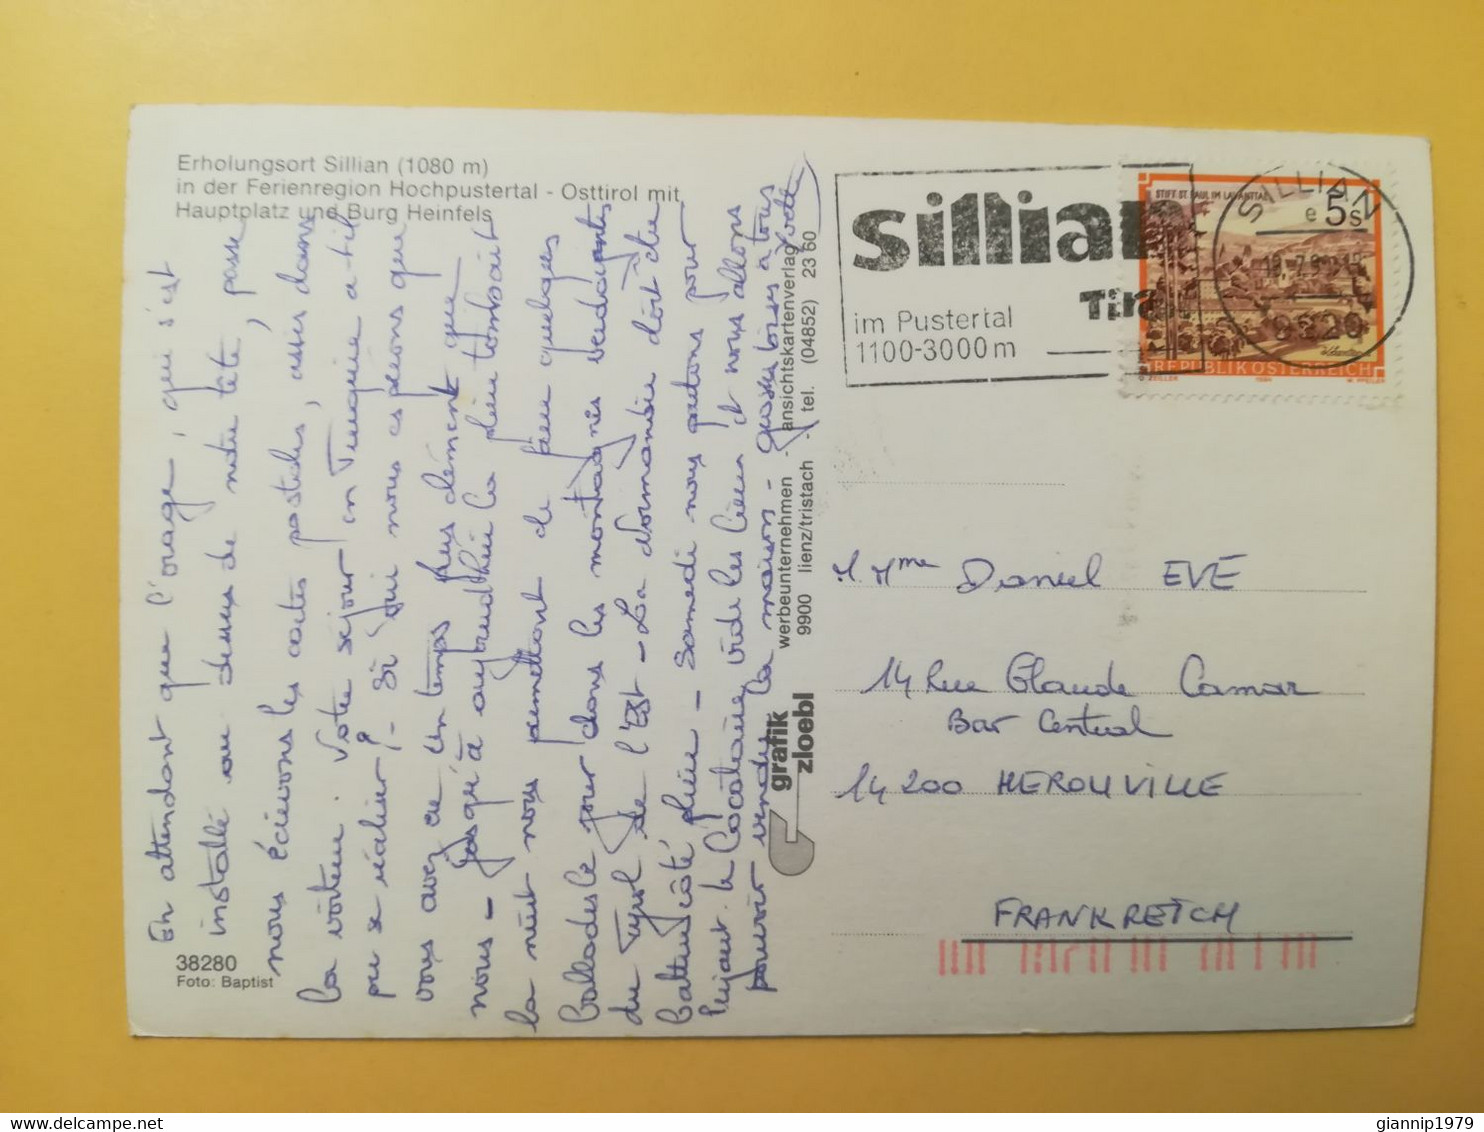 Erholungsort Sillian (1080 m)
in der Ferienregion Hochpustertal - Osttirol mit
Hauptplatz und Burg Heinfels
En attendant que l'orage, qui s'est
installé au dessus de notre tête, passe
nous écrivons les cartes postales, assis dans
la voiture. Votre séjour en Turquie a-t-il
pu se réaliser ? - Si oui nous espérons que
vous avez eu un temps plus clément que
nous - Jusqu'à aujourd'hui la pluie tombait
la nuit nous permettant de faire quelques
ballades le jour dans les montagnes verdoyantes
du Tyrol de l'Est - La Normandie doit être
battue côté pluie - Samedi nous partons pour
Fréjus le locataire vide les lieux et nous allons
pouvoir vendre la maison - Grosses bises à tous
Yvette
38280
Foto: Baptist
grafik
zloebl
werbeunternehmen - ansichtskartenverlag
9900 lienz/tristach - tel. (04852) 23 60
sillian
Tirol
im Pustertal
1100-3000m
SILLIAN
9920
STIFT ST. PAUL IM LAVANTTAL
e 5s
REPUBLIK ÖSTERREICH
M Mme Daniel EVE
14 Rue Claude Camar
Bar Central
14200 HEROUVILLE
FRANKREICH
giannip1979